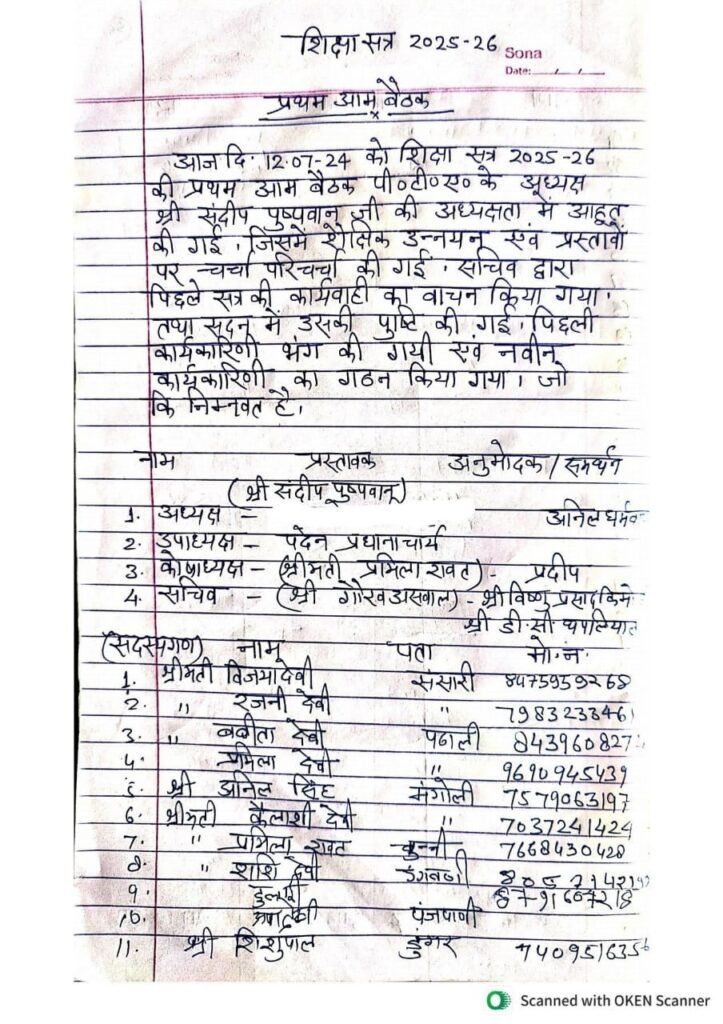 शिक्षा सत्र 2025-26
Sona
Date:
प्रथम आम बैठक
आज दि. 12.07-24 को शिक्षा सत्र 2025-26
की प्रथम आम बैठक पी०टी०ए० के अध्यक्ष
श्री संदीप पुष्पवान जी की अध्यक्षता में आहूत
की गई, जिसमें शैक्षिक उन्नयन एवं प्रस्तावों
पर चर्चा परिचर्चा की गई, सचिव द्वारा
पिछले सत्र की कार्यवाही का वाचन किया गया,
तथा सदन में उसकी पुष्टि की गई, पिछली
कार्यकारिणी भंग की गयी एवं नवीन
कार्यकारिणी का गठन किया गया, जो
कि निम्नवत है,
नाम प्रस्तावक अनुमोदक/समर्थन
(श्री संदीप पुष्पवान)
1. अध्यक्ष - अनिल
2. उपाध्यक्ष - पदेन प्रधानाचार्य
3. कोषाध्यक्ष - (श्रीमती प्रमिला रावत) - प्रदीप
4. सचिव - (श्री गौरव असवाल) - श्री विष्णु प्रसाद
श्री डी.सी थपलियाल
(सदस्यगण) नाम पता मो.न.
1. श्रीमती विजया देवी संसारी 8475959268
2. " रजनी देवी " 7983233461
3. " बबीता देवी पठाली 843960827
4. प्रमिला देवी " 9690945439
5. श्री अनिल सिंह मंगोली 7579063197
6. श्रीमती कैलाशी देवी " 7037241424
7. " प्रमिला रावत चुन्नी 7668430428
8. " शशि देवी
9. 8791667218
10. पंजपाणी
11. श्री शिशुपाल डुंगर 740951635
Scanned with OKEN Scanner